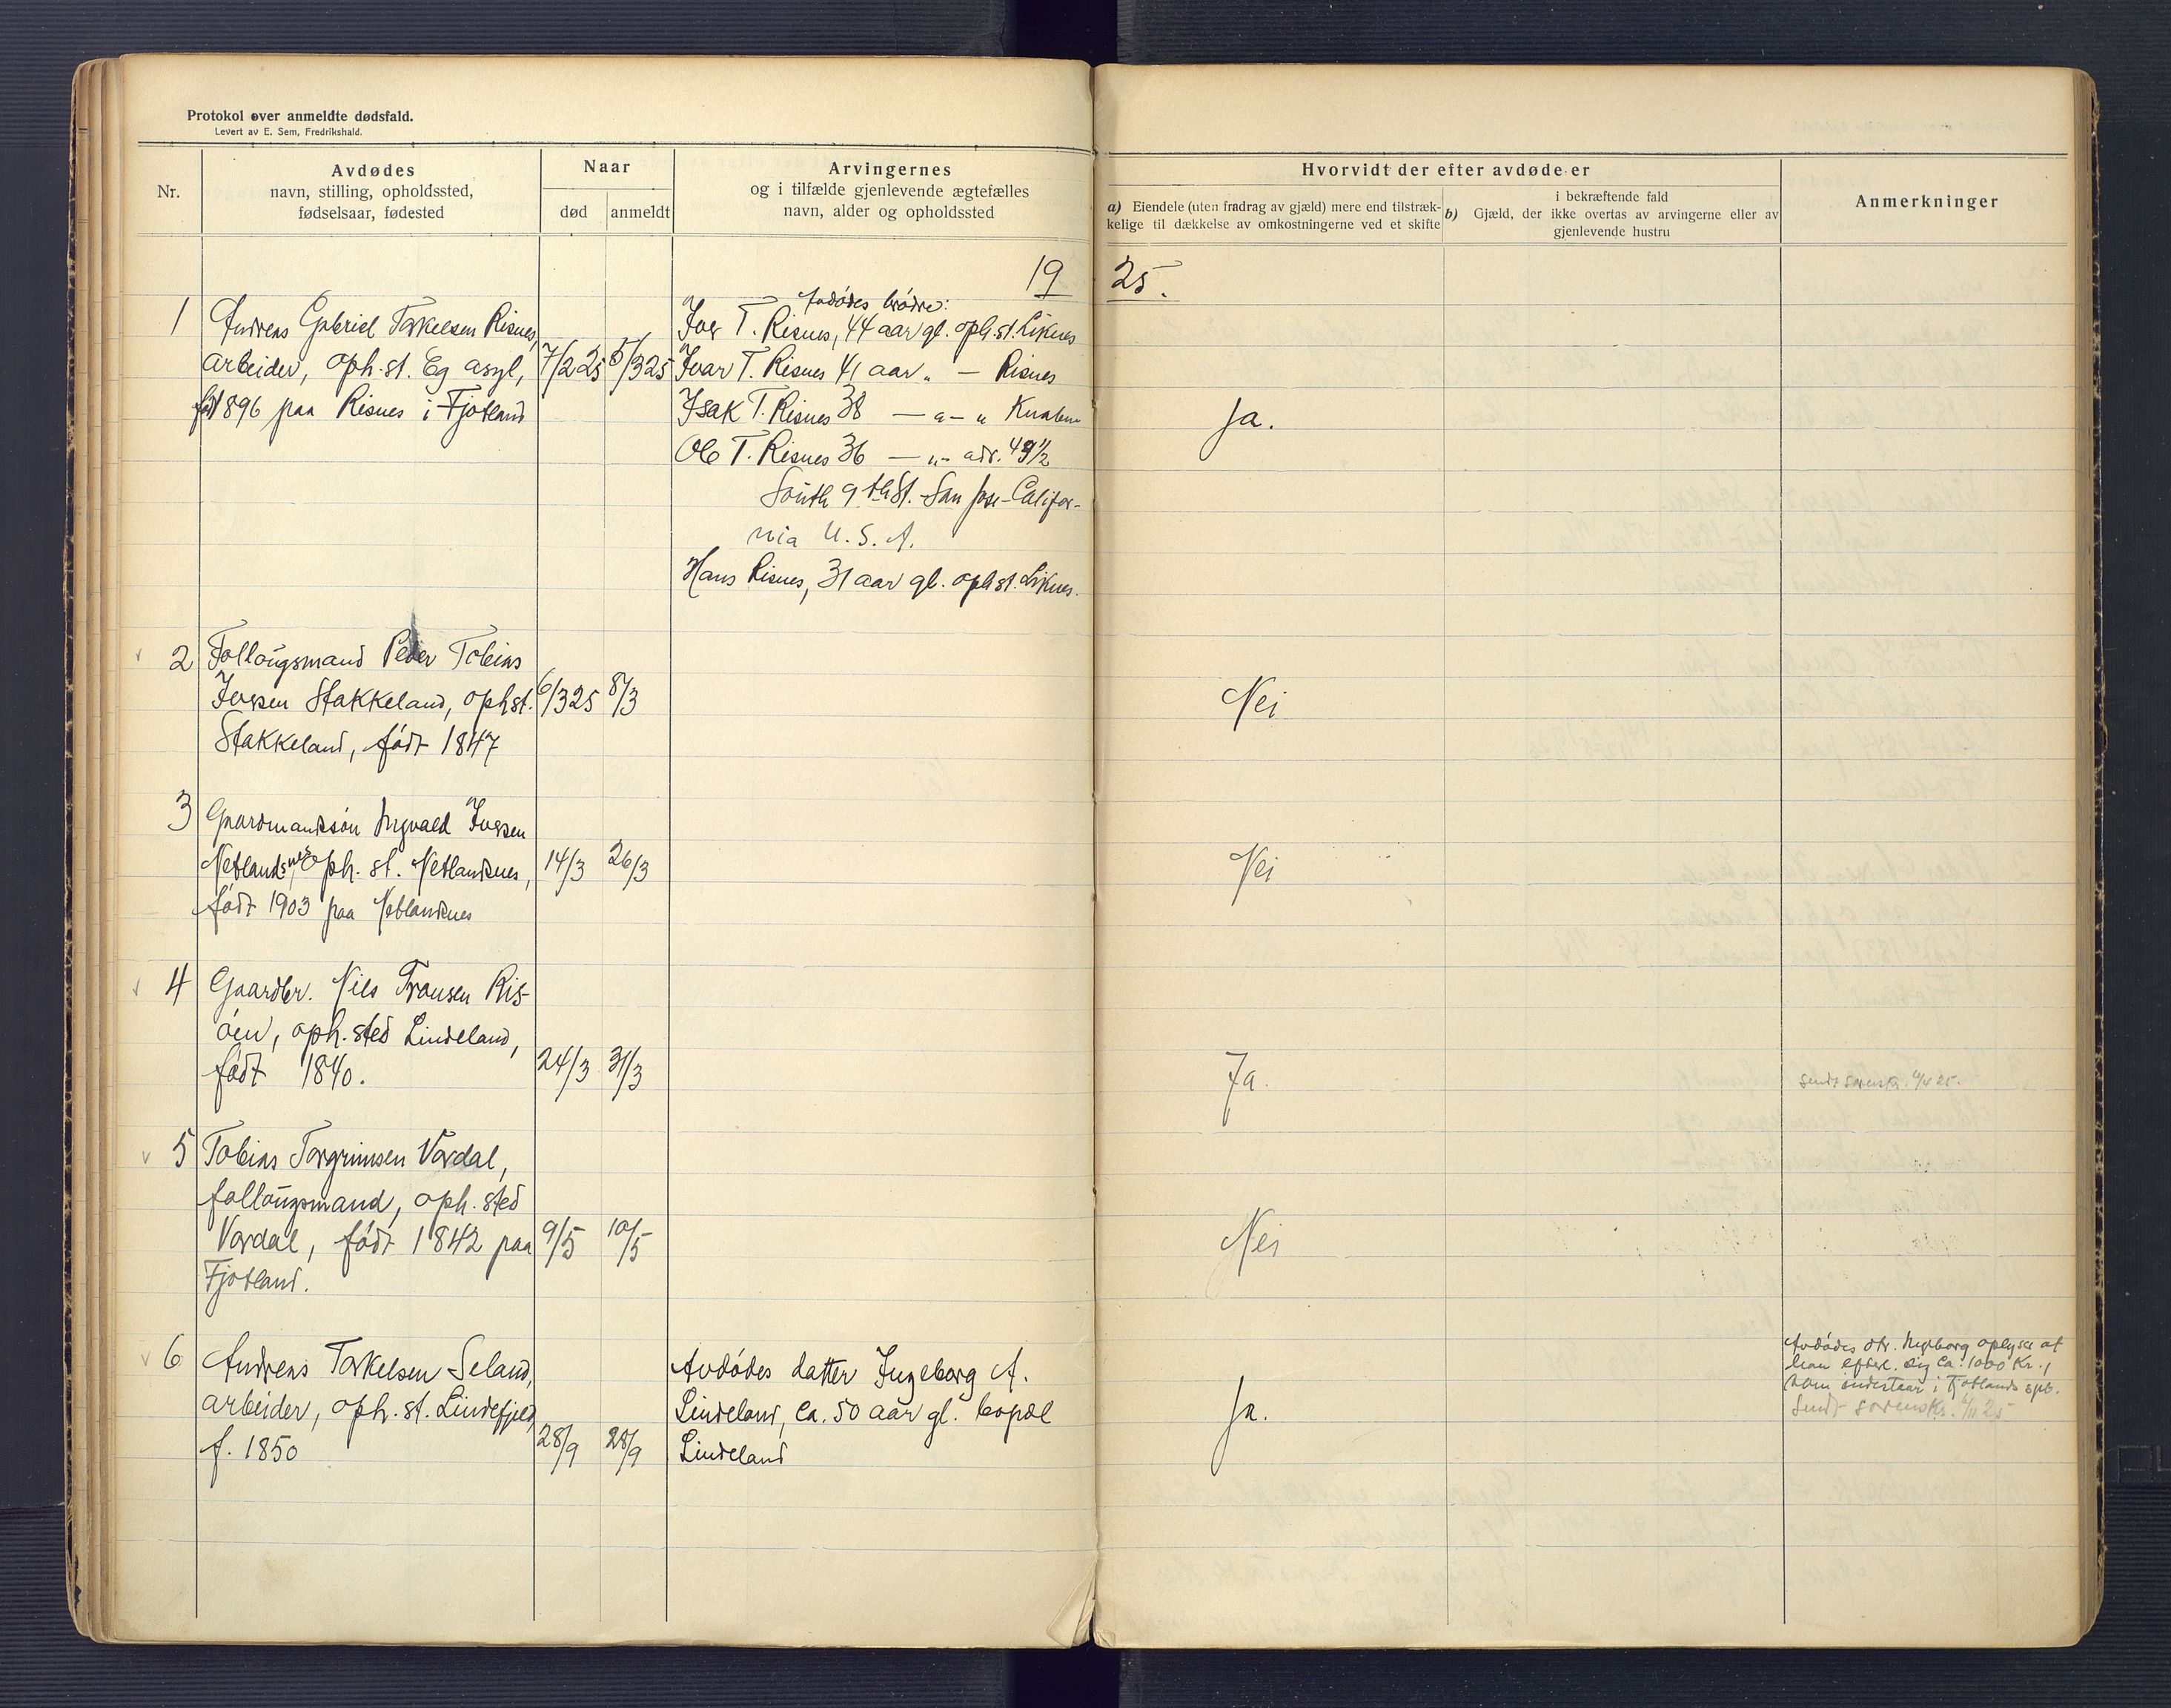 Protokol over anmeldte dødsfald.
Levert av E. Sem, Fredrikshald.
Nr.
Avdødes
navn, stilling, opholdssted,
fødselsaar, fødested
Naar
død
anmeldt
Arvingernes
og i tilfælde gjenlevende ægtefælles
navn, alder og opholdssted
Hvorvidt der efter avdøde er
a) Eiendele (uten fradrag av gjæld) mere end tilstræk-
kelige til dækkelse av omkostningerne ved et skifte
i bekræftende fald
b) Gjæld, der ikke overtas av arvingerne eller av
gjenlevende hustru
Anmerkninger
19 25.
1
Andreas Gabriel Torkelsen Risnes,
arbeider, oph.st. Eg asyl,
født 1896 paa Risnes i Fjotland
7/2 25
5/3 25
Avdødes brødre:
Iver T. Risnes, 44 aar gl. oph.st. Liknes
Ivar T. Risnes 41 aar „ — Risnes
Isak T. Risnes 38 — „ — „ Knaben
Ole T. Risnes 36 — „ - adr. 491/2
South 9th St. - San Jose - Califor-
nia U. S. A.
Hans Risnes, 31 aar gl. oph st. Liknes.
Ja.
2
Follougsmand Peder Tobias
Iversen Stakkeland, oph st.
Stakkeland, født 1847
6/3 25
8/3
Nei
3
Gaardmandssøn Ingvald Iversen
Netlandsnes, oph. st. Netlandsnes,
født 1903 paa Netlandsnes
14/3
26/3
Nei
4
Gaardbr. Nils Tronsen Ris-
øen, oph. sted Lindeland,
født 1840.
24/3
31/3
Ja.
sendt sorenskr.
5
Tobias Torgrimsen Vordal,
follougsmand, oph. sted
Vordal, født 1842 paa
Fjotland.
9/5
10/5
Nei
6
Andreas Torkelsen Seland,
arbeider, oph. st. Lindefjeld,
f. 1850
28/9
28/9
Avdødes datter Ingeborg A.
Lindeland, ca. 50 aar gl. bopæl
Lindeland
Ja.
Avdødes dtr. Ingeborg oplyser at
han efterl. sig ca. 1000 kr.,
som indestaar i Fjotlands spb.
Sendt sorenskr.